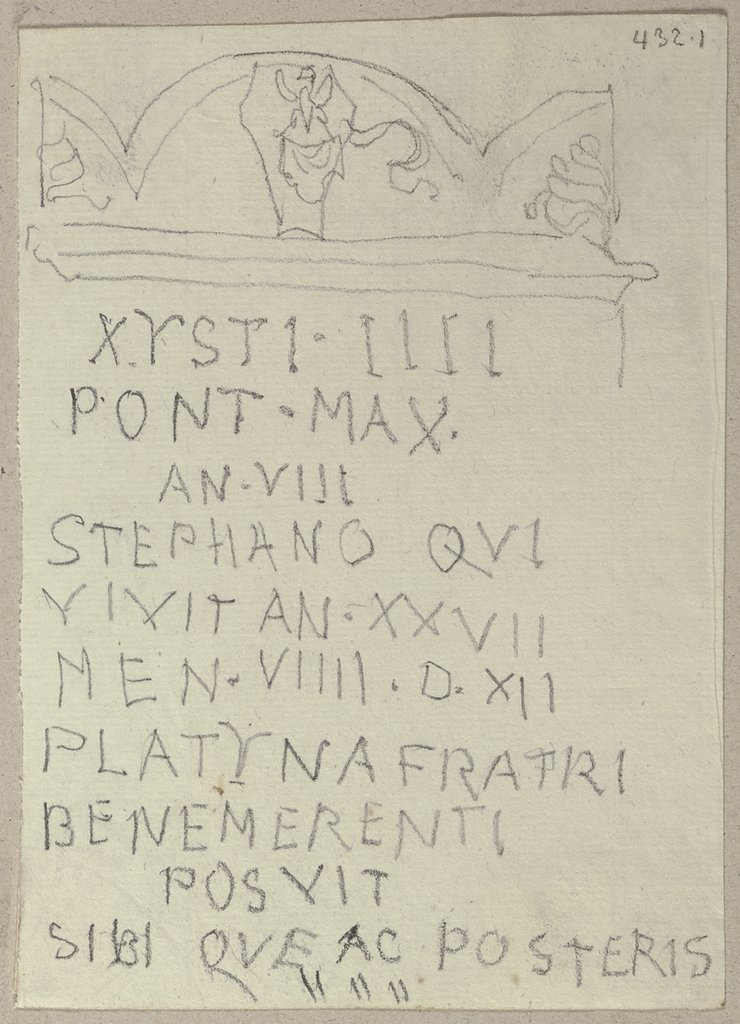 432.1
XYSTI· IIII
PONT·MAX.
AN·VIII
STEPHANO QVI
VIXIT AN·XXVII
MEN·VIIII·D·XII
PLATYNA FRATRI
BENEMERENTI
POSVIT
SIBI QVE AC POSTERIS